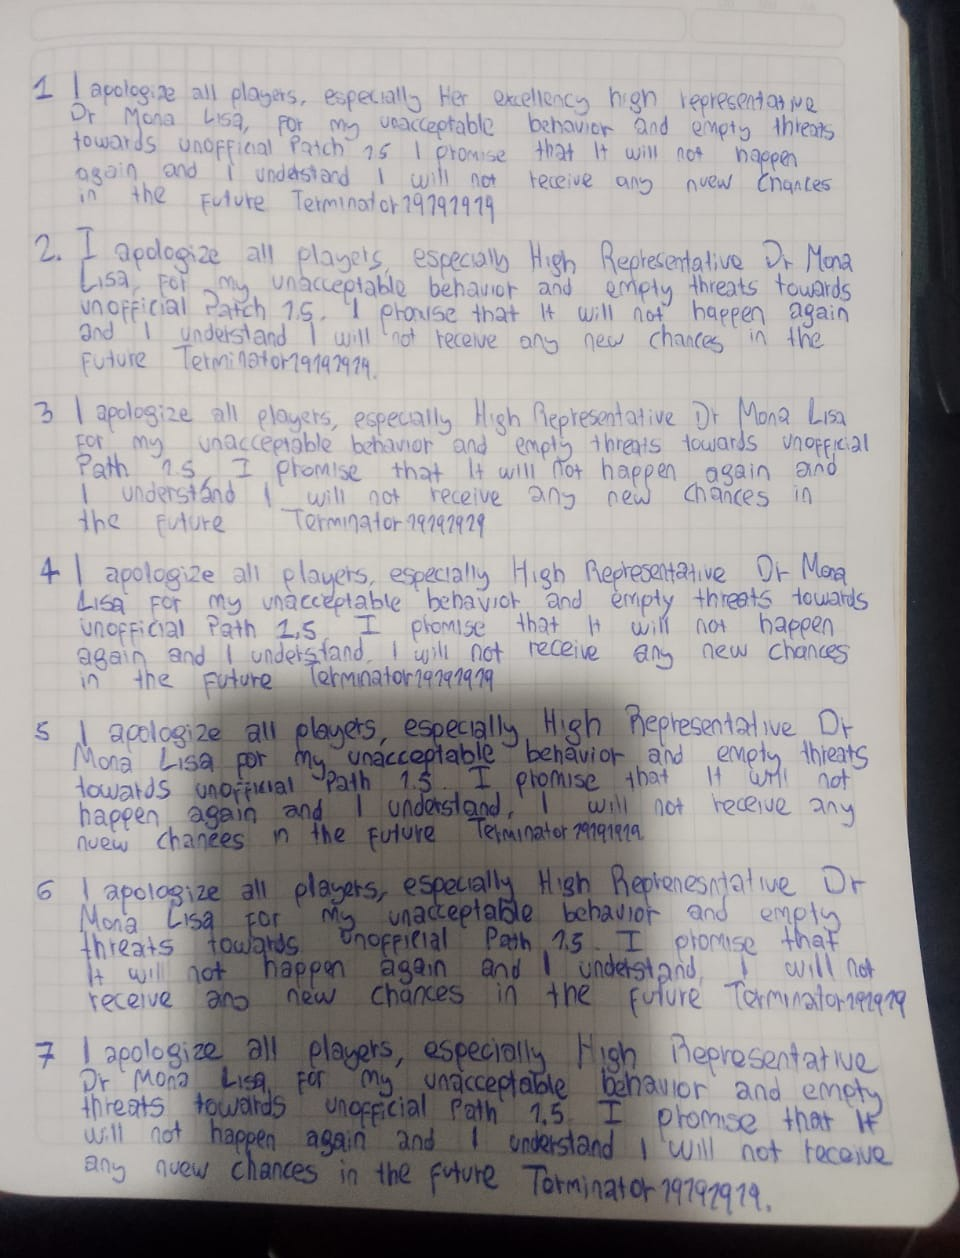 1 I apologize all players, especially Her excellency high representative
Dr Mona Lisa, For my unacceptable behavior and empty threats
towards unofficial Patch 1.5 I promise that It will not happen
again and I understand I will not receive any nuew chances
in the Future Terminator19191919
2. I apologize all players, especially High Representative Dr Mona
Lisa, For my unacceptable behavior and empty threats towards
unofficial Patch 1.5. I promise that It will not happen again
and I understand I will not receive any new chances in the
Future Terminator19191919.
3 I apologize all players, especially High Representative Dr Mona Lisa
For my unacceptable behavior and empty threats towards unofficial
Path 1.5. I promise that It will not happen again and
I understand I will not receive any new chances in
the Future Terminator19191919
4 I apologize all players, especially High Representative Dr Mona
Lisa For my unacceptable behavior and empty threats towards
unofficial Path 1,5. I promise that It will not happen
again and I understand, I will not receive any new chances
in the Future Terminator19191919
5 I apologize all players, especially High Representative Dr
Mona Lisa for my unacceptable behavior and empty threats
towards unofficial Path 1.5. I promise that It will not
happen again and I understand, I will not receive any
nuew chances in the Future Terminator19191919
6 I apologize all players, especially High Reprenesntative Dr
Mona Lisa For my unacceptable behavior and empty
threats towards unofficial Path 1.5. I promise that
It will not happen again and I understand, I will not
receive any new chances in the Future Terminator191919
7 I apologize all players, especially High Representative
Dr Mona Lisa, For my unacceptable behavior and empty
threats towards unofficial Path 1,5. I promise that It
will not happen again and I understand I will not receive
any nuew chances in the Future Terminator19191919.